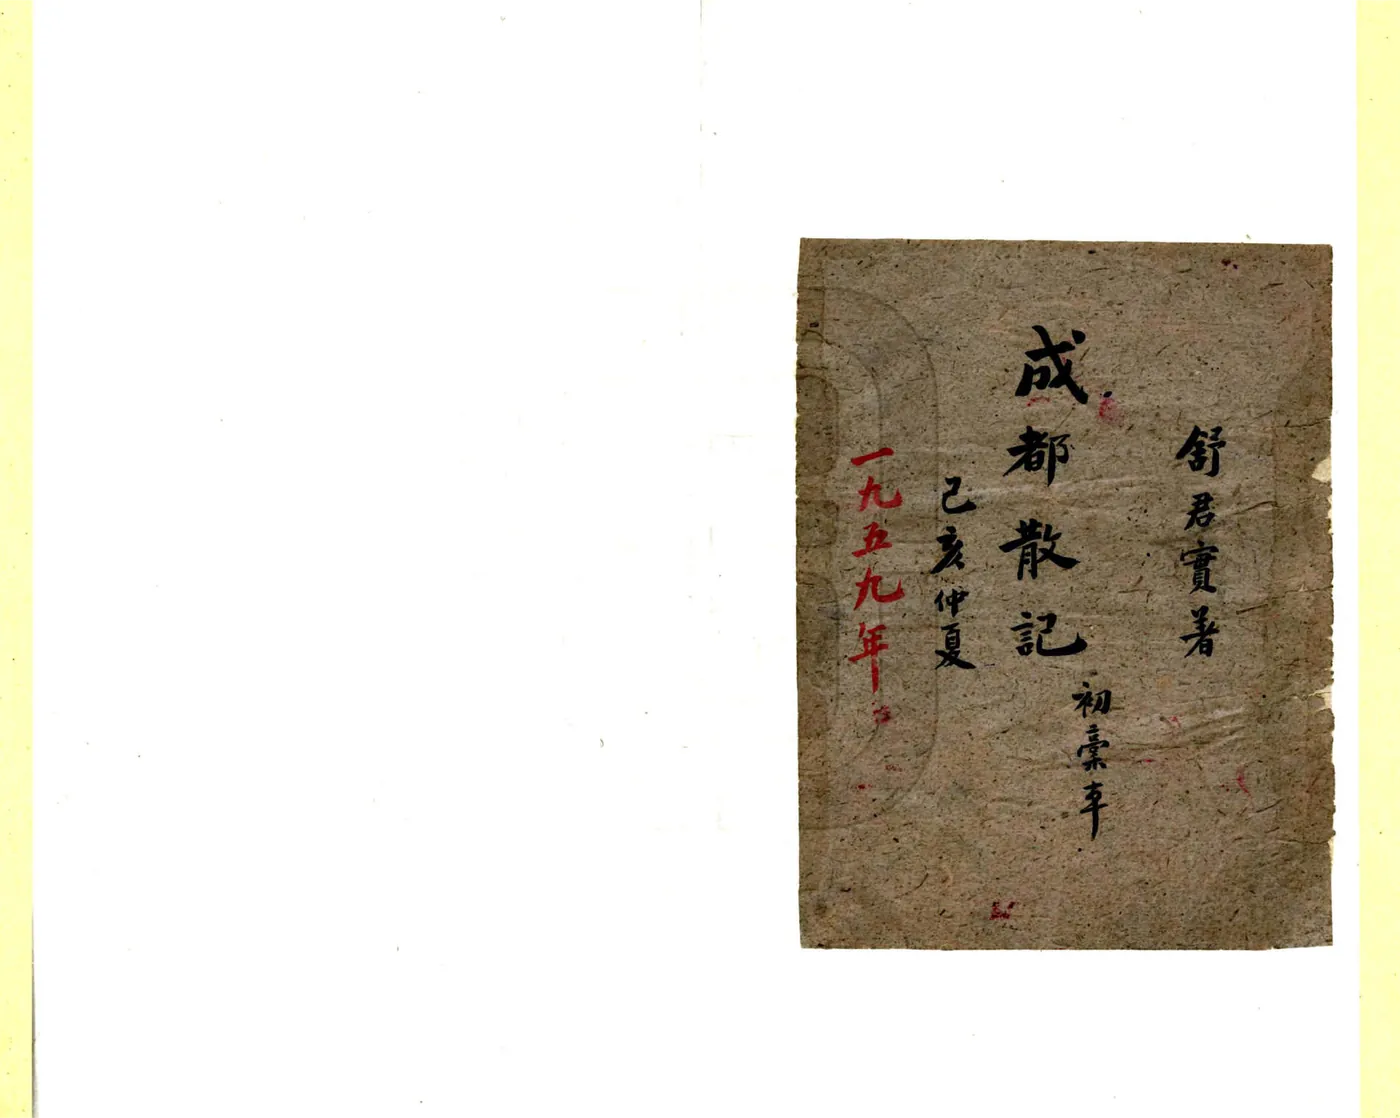 舒君實著
成都散記
初稾本
己亥仲夏
一九五九年